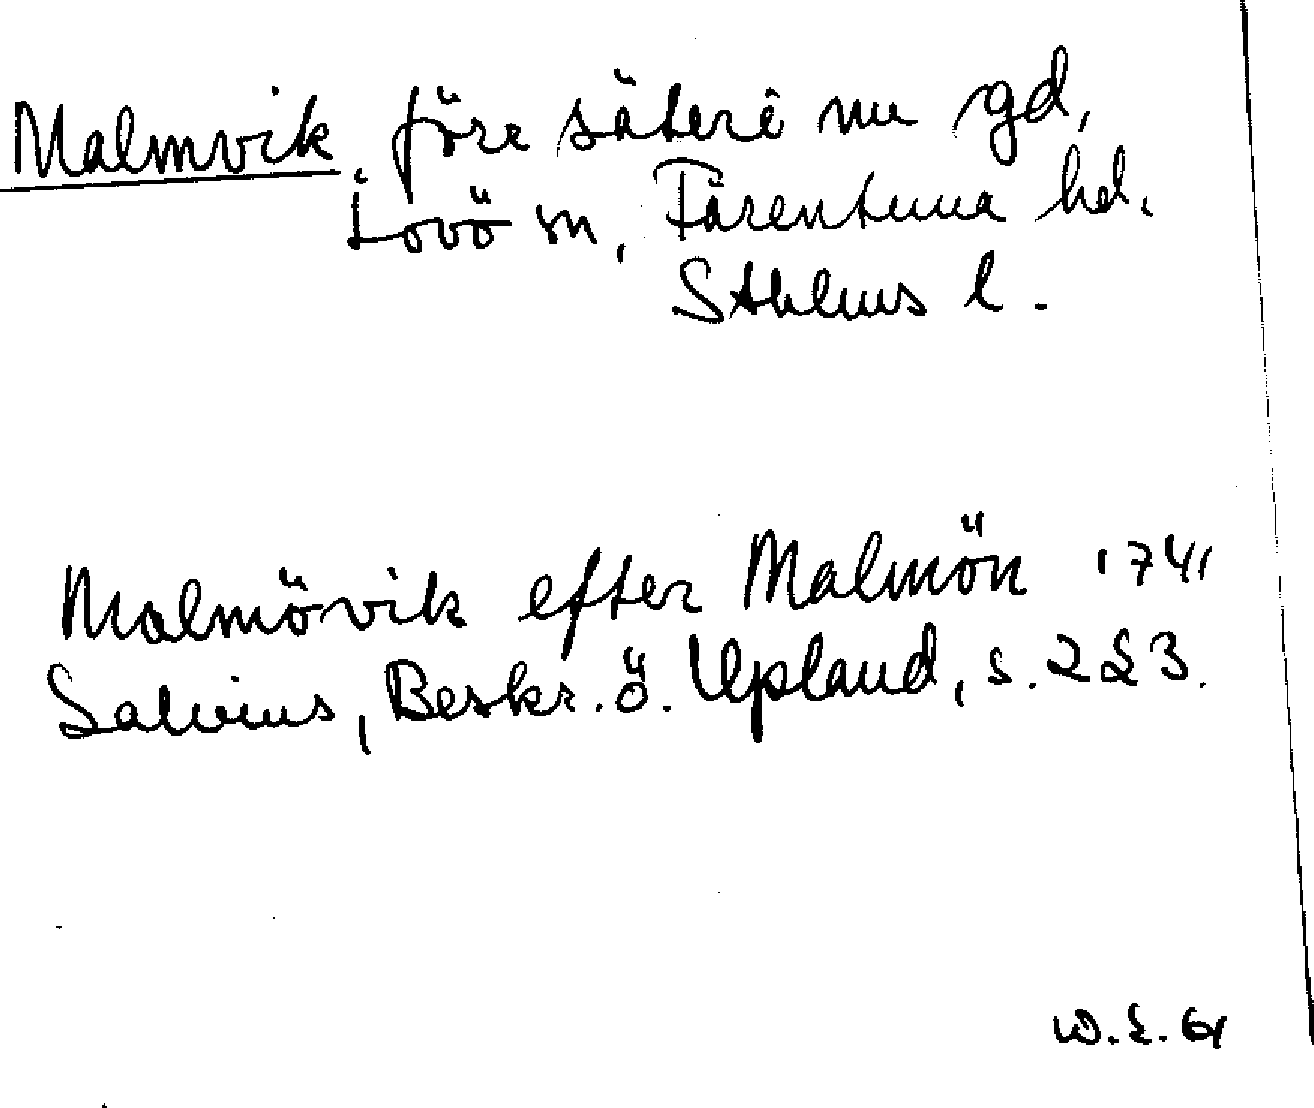 Malmvik, före säteri nu gd,
Lovö sn, Färentuna hd.
Sthlms l.
Malmövik efter Malmön 1741
Salvius, Beskr. ö. Upland, s. 223.
W.E. 61